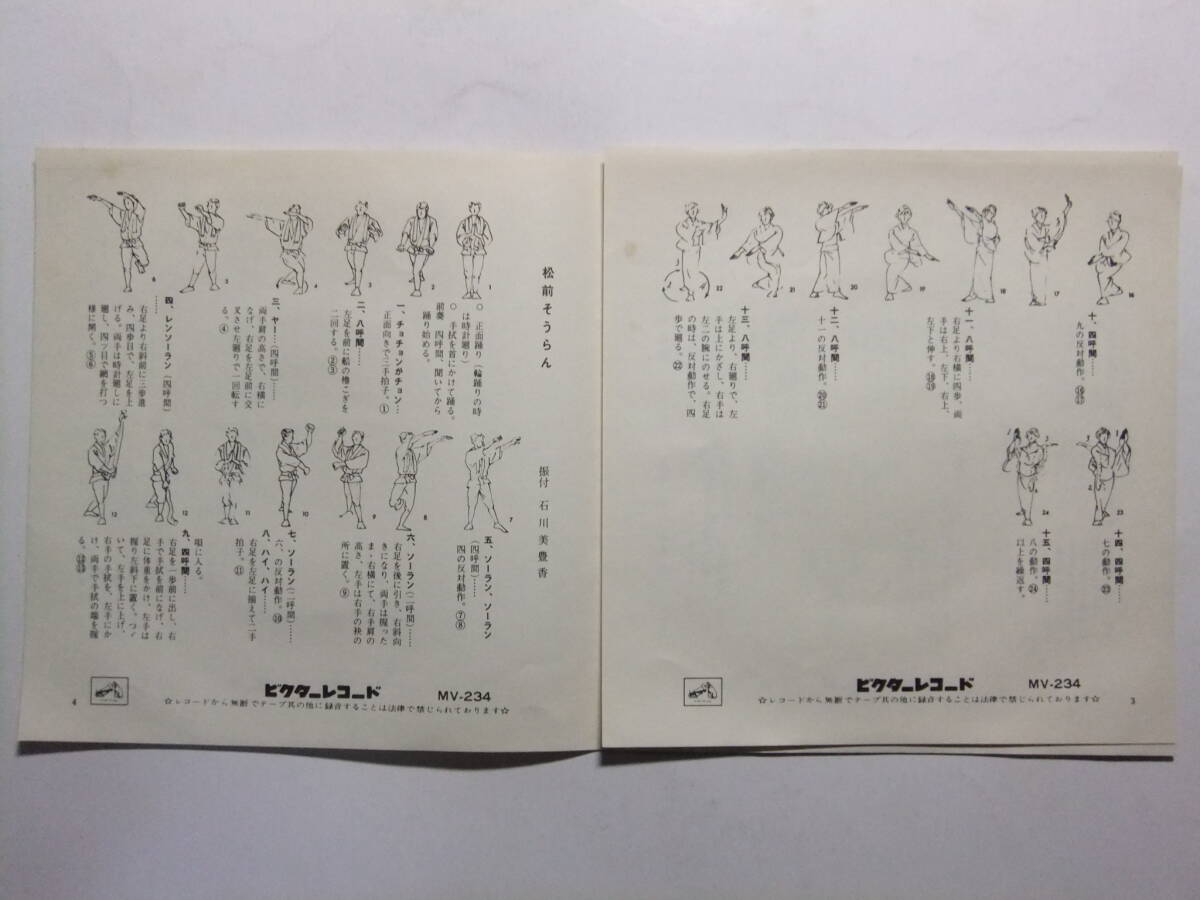 十、四呼間……
九の反対動作。⑯⑰
十一、八呼間……
右足より右横に四歩、両
手は右上、左下、右上、
左下と伸す。⑱⑲
十二、八呼間……
十一の反対動作。⑳㉑
十三、八呼間……
左足より、右廻りで、左
手は上にかざし、右手は
左二の腕にのせる。右足
の時は、反対動作で、四
歩で廻る。㉒
16
17
18
19
20
21
22
十四、四呼間……
七の動作。㉓
十五、四呼間……
八の動作。㉔
以上を繰返す。
23
24
ビクターレコード
MV-234
☆レコードから無断でテープ其の他に録音することは法律で禁じられております☆
3
松前そうらん
振付 石川美豊香
○ 正面踊り(輪踊りの時
は時計廻り)
○ 手拭を首にかけて踊る。
前奏 四呼間、聞いてから
踊り始める。
一、チョチョンがチョン…
正面向きで三手拍子。①
二、八呼間……
左足を前に船の櫓こぎを
二回する。②③
三、ヤー…(四呼間)……
両手肩の高さで、右横に
なげ、右足を左足前に交
叉させ左廻りで一回転す
る。④
四、レンソーラン(四呼間)
……
右足より右斜前に三歩進
み、四歩目で、左足を上
げる。両手は時計廻しに
廻し、四ツ目で網を打つ
様に開く。⑤⑥
1
2
3
4
5
6
五、ソーラン、ソーラン
(四呼間)……
四の反対動作。⑦⑧
六、ソーラン(二呼間)……
右足を後に引き、右斜向
きになり、両手は握った
ま・右横にて、右手肩の
高さ、左手は右手の袂の
所に置く。⑨
七、ソーラン(二呼間)……
六、の反対動作。⑩
八、ハイ、ハイ……
右足を左足に揃えて二手
拍子。⑪
唄に入る。
九、四呼間……
右足を一歩前に出し、右
手で手拭を前になげ、右
足に体重をかけ、左手は
握り左斜下に置く。つゞ
いて、左手を上に上げ、
右手の手拭を、左手にか
け、両手で手拭の端を握
る。⑫⑬
7
8
9
10
11
12
13
ビクターレコード
MV-234
☆レコードから無断でテープ其の他に録音することは法律で禁じられております☆
4